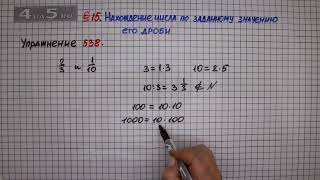 4 из 5
§ 15. Нахождение числа по заданному значению его дроби
Упражнение 538.
2/3 и 1/10
3 = 1·3 10 = 2·5
10:3 = 3 1/3 ∉ N
100 = 10·10
1000 = 10·100